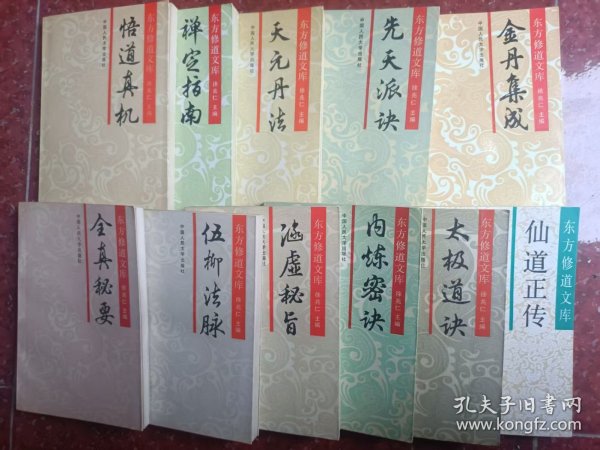 悟道真机
东方修道文库
徐兆仁 主编
中国人民大学出版社
禅定指南
东方修道文库
徐兆仁 主编
中国人民大学出版社
天元丹法
东方修道文库
徐兆仁 主编
中国人民大学出版社
先天派诀
东方修道文库
徐兆仁 主编
中国人民大学出版社
金丹集成
东方修道文库
徐兆仁 主编
中国人民大学出版社
全真秘要
东方修道文库
徐兆仁 主编
中国人民大学出版社
伍柳法脉
东方修道文库
徐兆仁 主编
中国人民大学出版社
涵虚秘旨
东方修道文库
徐兆仁 主编
中国人民大学出版社
内炼密诀
东方修道文库
徐兆仁 主编
中国人民大学出版社
太极道诀
东方修道文库
徐兆仁 主编
中国人民大学出版社
仙道正传
东方修道文库
孔夫子旧书网
www.kongfz.com